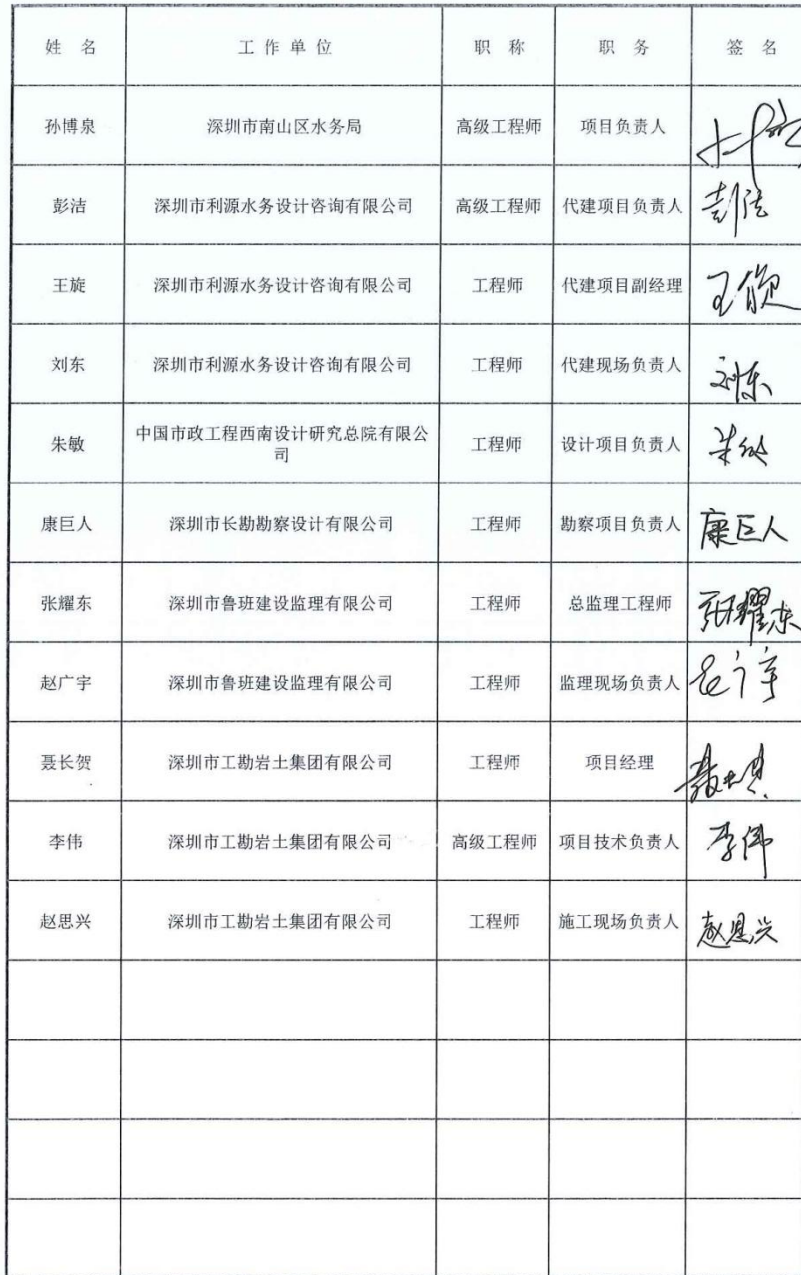 姓 名 工 作 单 位 职 称 职 务 签 名
孙博泉 深圳市南山区水务局 高级工程师 项目负责人
彭洁 深圳市利源水务设计咨询有限公司 高级工程师 代建项目负责人 彭洁
王旋 深圳市利源水务设计咨询有限公司 工程师 代建项目副经理
刘东 深圳市利源水务设计咨询有限公司 工程师 代建现场负责人 刘东
朱敏 中国市政工程西南设计研究总院有限公
司 工程师 设计项目负责人 朱敏
康巨人 深圳市长勘勘察设计有限公司 工程师 勘察项目负责人 康巨人
张耀东 深圳市鲁班建设监理有限公司 工程师 总监理工程师 张耀东
赵广宇 深圳市鲁班建设监理有限公司 工程师 监理现场负责人 赵广宇
聂长贺 深圳市工勘岩土集团有限公司 工程师 项目经理
李伟 深圳市工勘岩土集团有限公司 高级工程师 项目技术负责人 李伟
赵思兴 深圳市工勘岩土集团有限公司 工程师 施工现场负责人 赵思兴